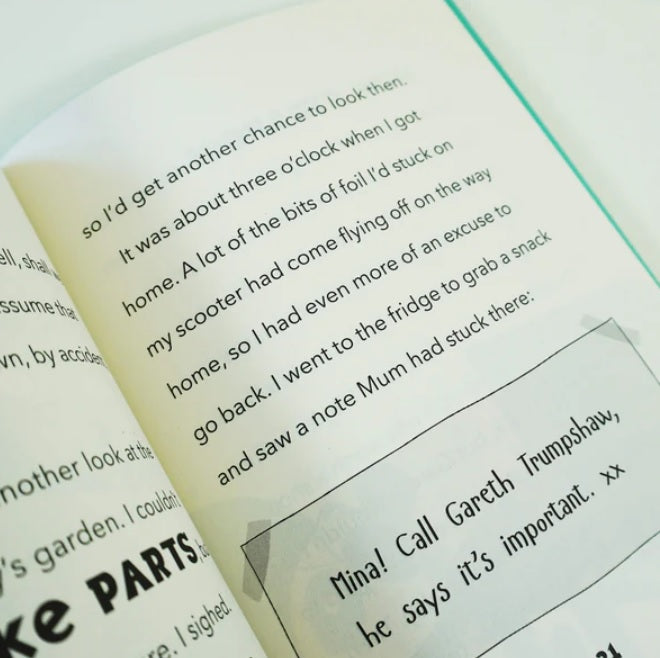 ell, shall
ssume that
wn, by acciden
nother look at the
y's garden. I couldn't
ke PARTS,
re. I sighed.
so I'd get another chance to look then.
It was about three o'clock when I got
home. A lot of the bits of foil I'd stuck on
my scooter had come flying off on the way
home, so I had even more of an excuse to
go back. I went to the fridge to grab a snack
and saw a note Mum had stuck there:
Mina! Call Gareth Trumpshaw,
he says it's important. xx
21